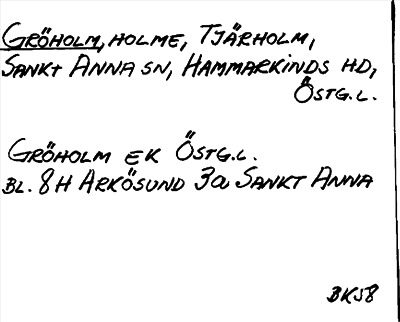 GRÖHOLM, HOLME, TJÄRHOLM,
SANKT ANNA SN, HAMMARKINDS HD,
ÖSTG.L.
GRÖHOLM EK ÖSTG.L.
BL. 8H ARKÖSUND 3a SANKT ANNA
BKS8